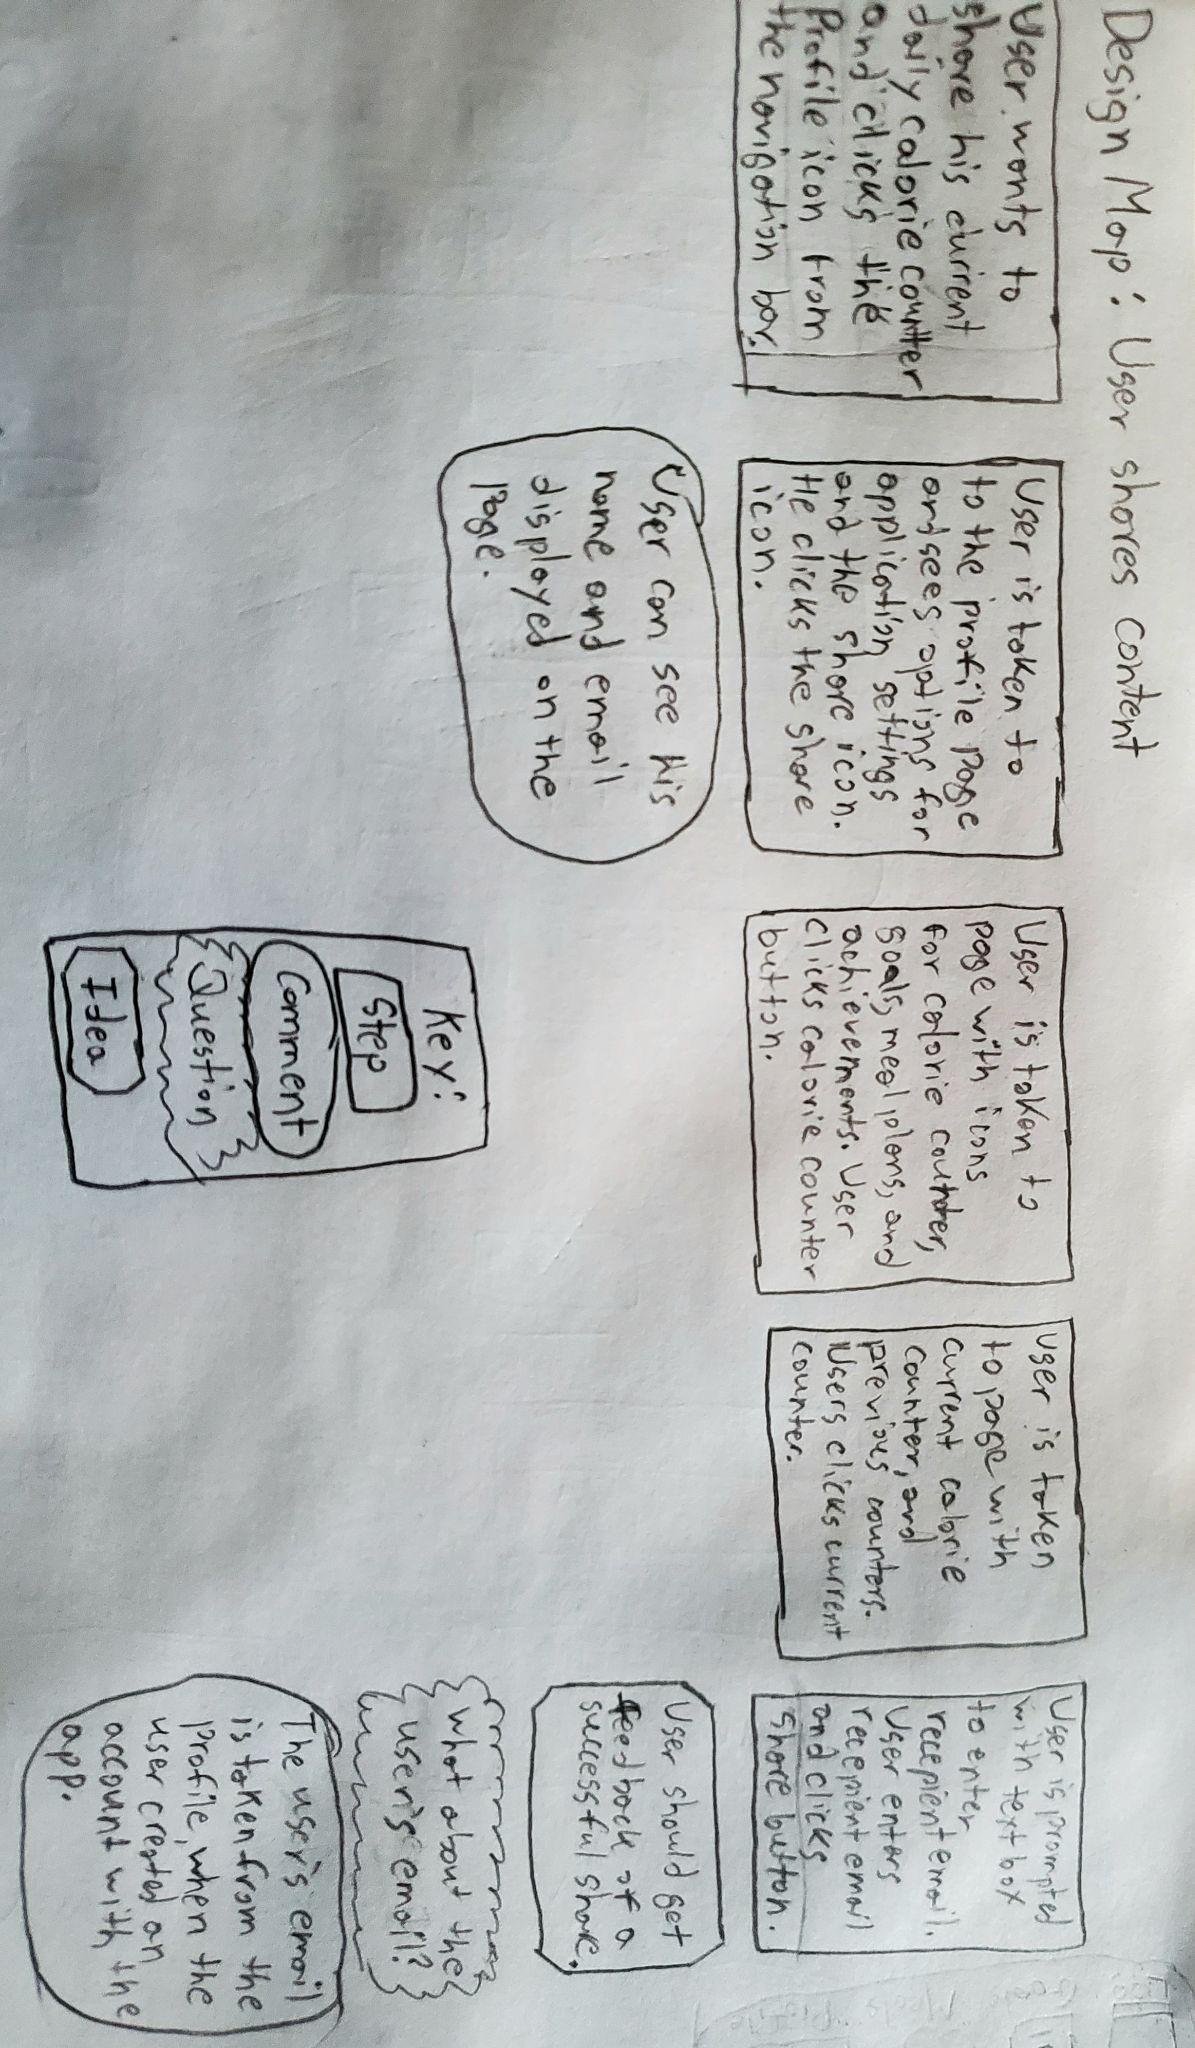 Design Map: User shares content
User wants to
share his current
daily calorie counter
and clicks the
Profile icon from
the navigation bar.
User is taken to
to the profile page
and sees options for
application settings
and the share icon.
He clicks the share
icon.
User can see his
name and email
displayed on the
page.
User is taken to
page with icons
for calorie counter,
goals, meal plans, and
achievements. User
clicks calorie counter
button.
User is taken
to page with
current calorie
counter, and
previous counters.
Users clicks current
counter.
User is prompted
with text box
to enter
recepient email.
User enters
recepient email
and clicks
share button.
User should get
feedback of a
successful share.
What about the
user's email?
The user's email
is taken from the
profile, when the
user created an
account with the
app.
Key:
Step
Comment
Question
Idea